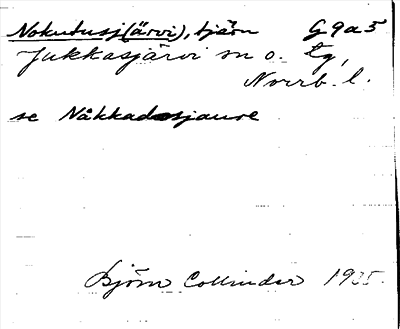 Nokutusj(ärvi), tjärn G9a5
Jukkasjärvi sn o. tg,
Norrb. l.
se Nåkkadasjaure
Björn Collinder 1935.